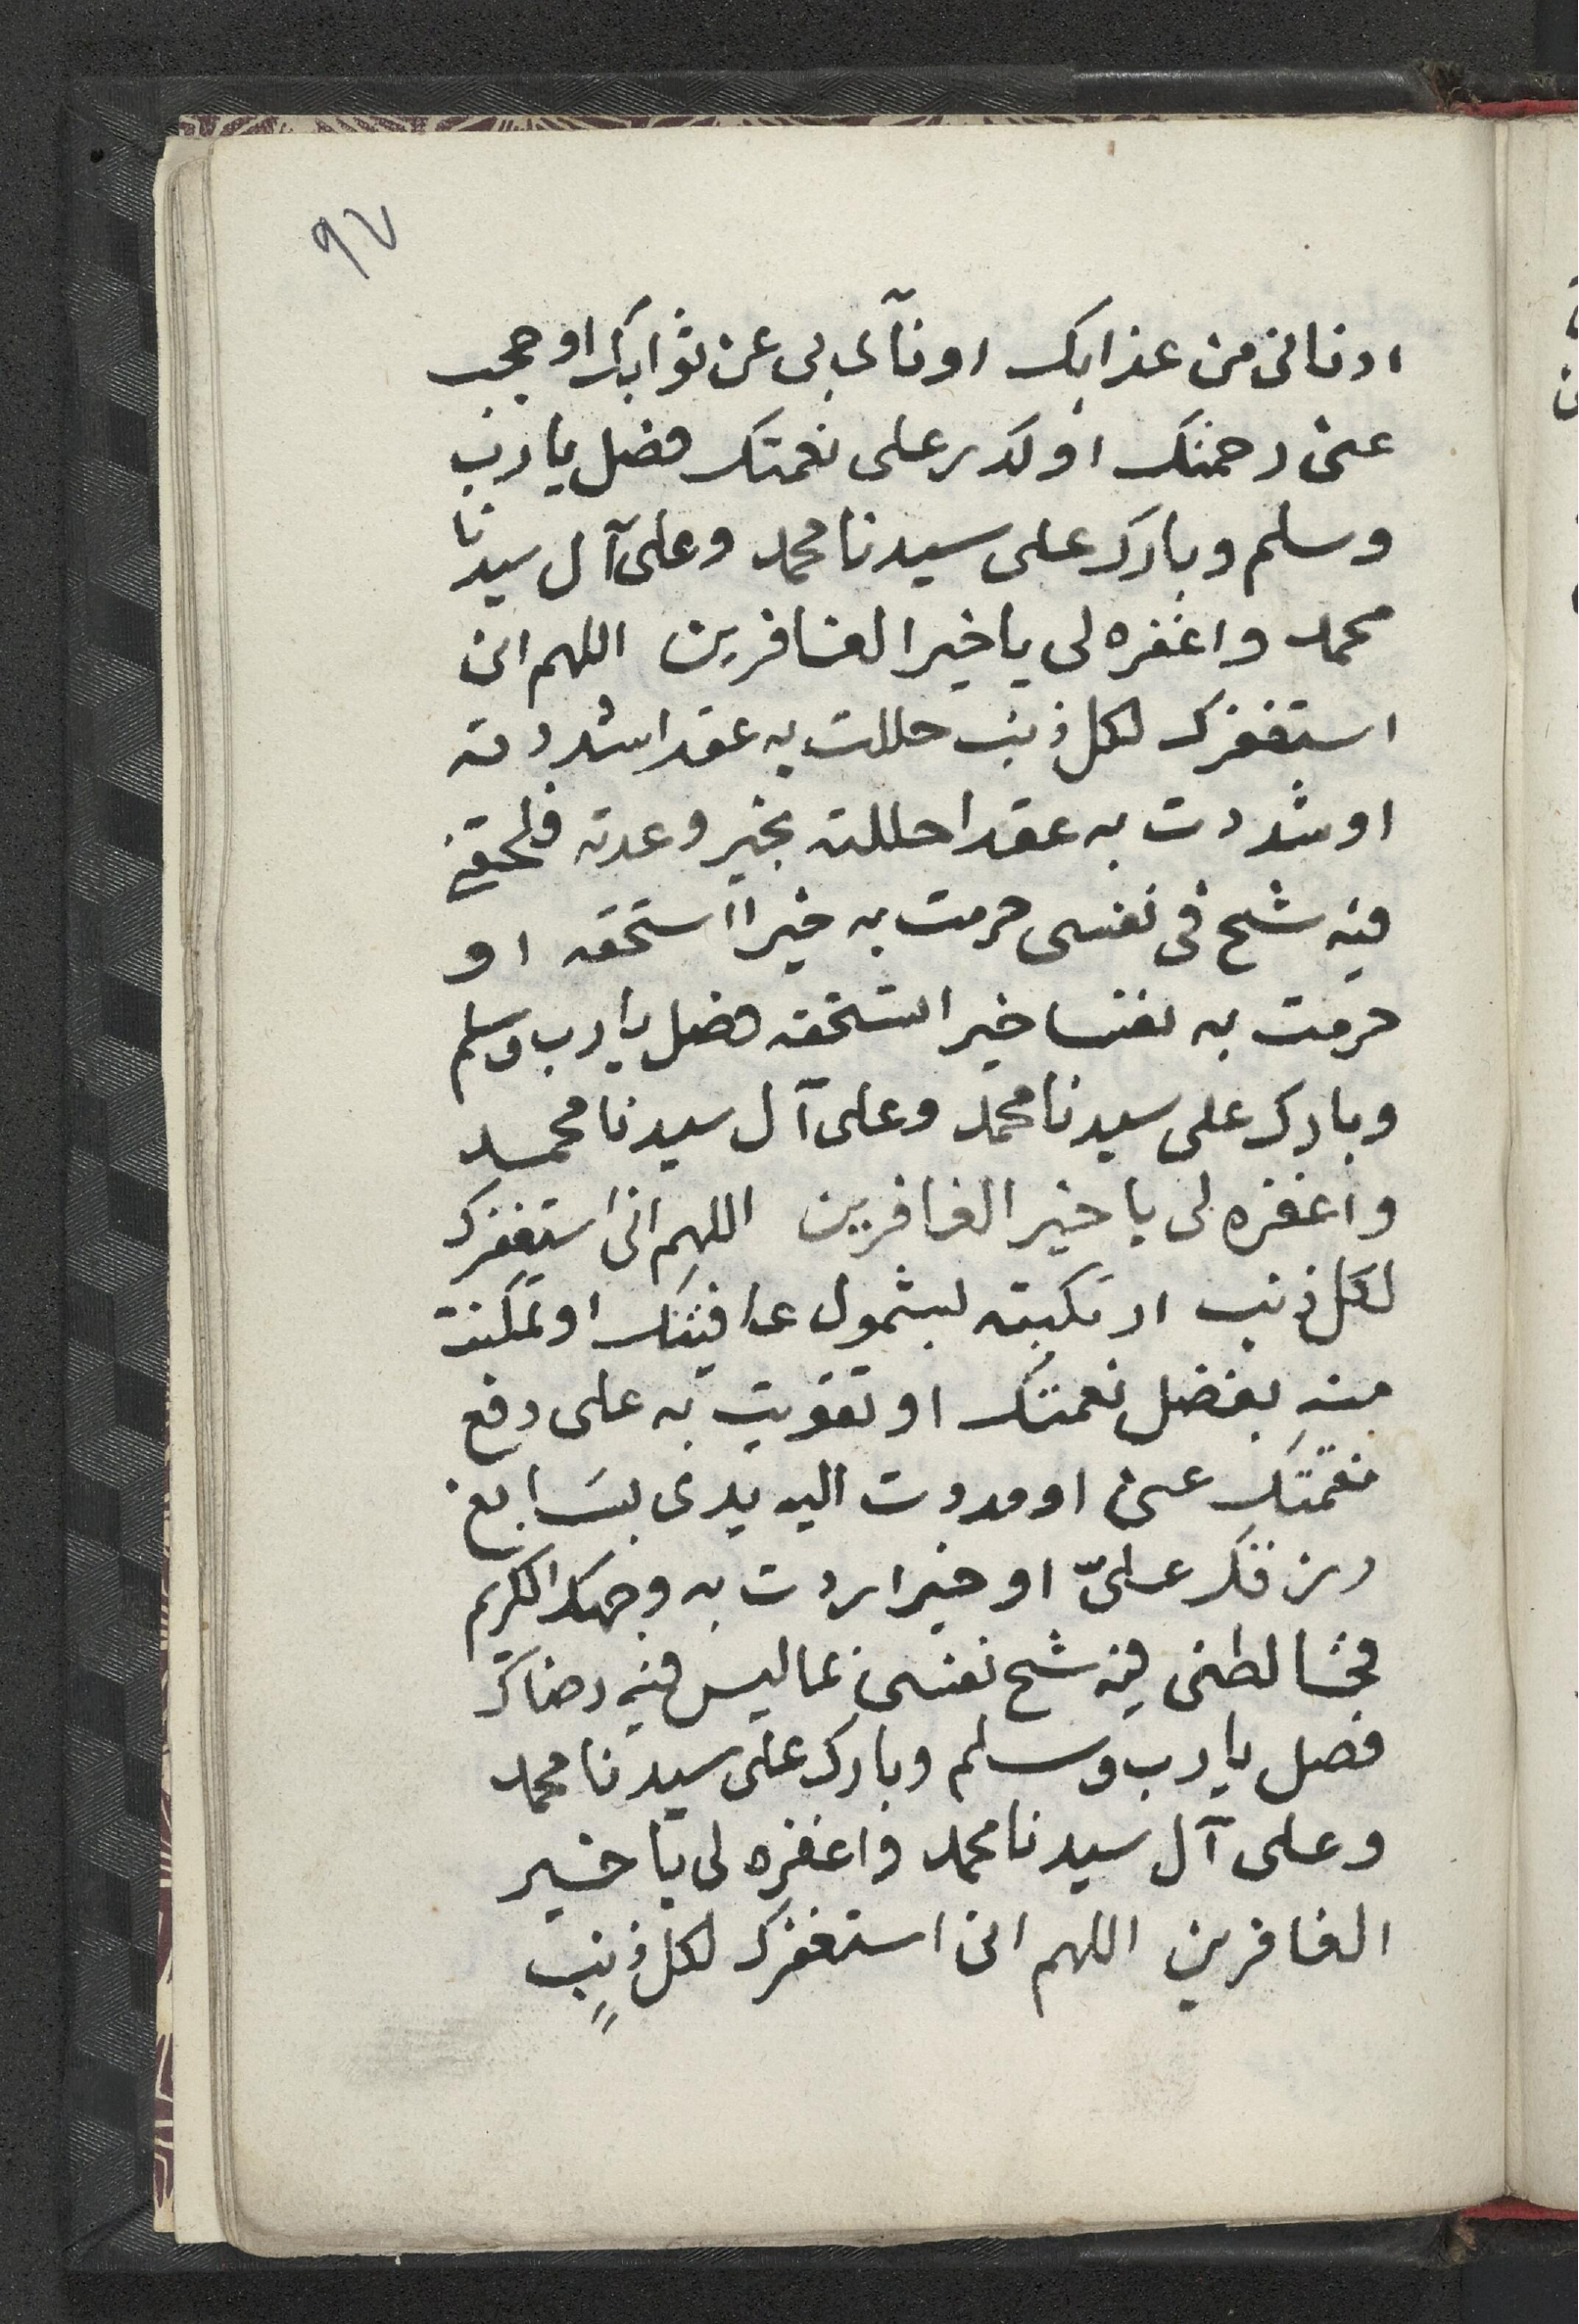 ٩٧
ادنانى من عذابك او نآى بى عن ثوابك او حجب
عنى رحمتك او كدر على نعمتك فصل يا رب
وسلم وبارك على سيدنا محمد وعلى آل سيدنا
محمد واغفره لى يا خير الغافرين اللهم انى
استغفرك لكل ذنب حللت به عقدا شددته
او شددت به عقدا حللته بخير وعدته فلحقنى
فيه شح فى نفسى حرمت به خيرا استحقه او
حرمت به نفسا خيرا تستحقه فصل يا رب وسلم
وبارك على سيدنا محمد وعلى آل سيدنا محمد
واغفره لى يا خير الغافرين اللهم انى استغفرك
لكل ذنب ارتكبته لشمول عافيتك او تمكنت
منه بفضل نعمتك او تقويت به على دفع
نقمتك عنى او مددت اليه يدى بسابغ
رزقك علىّ او خيرا اردت به وجهك الكريم
فخالطنى فيه شح نفسى بما ليس فيه رضاك
فصل يا رب وسلم وبارك على سيدنا محمد
وعلى آل سيدنا محمد واغفره لى يا خير
الغافرين اللهم انى استغفرك لكل ذنب